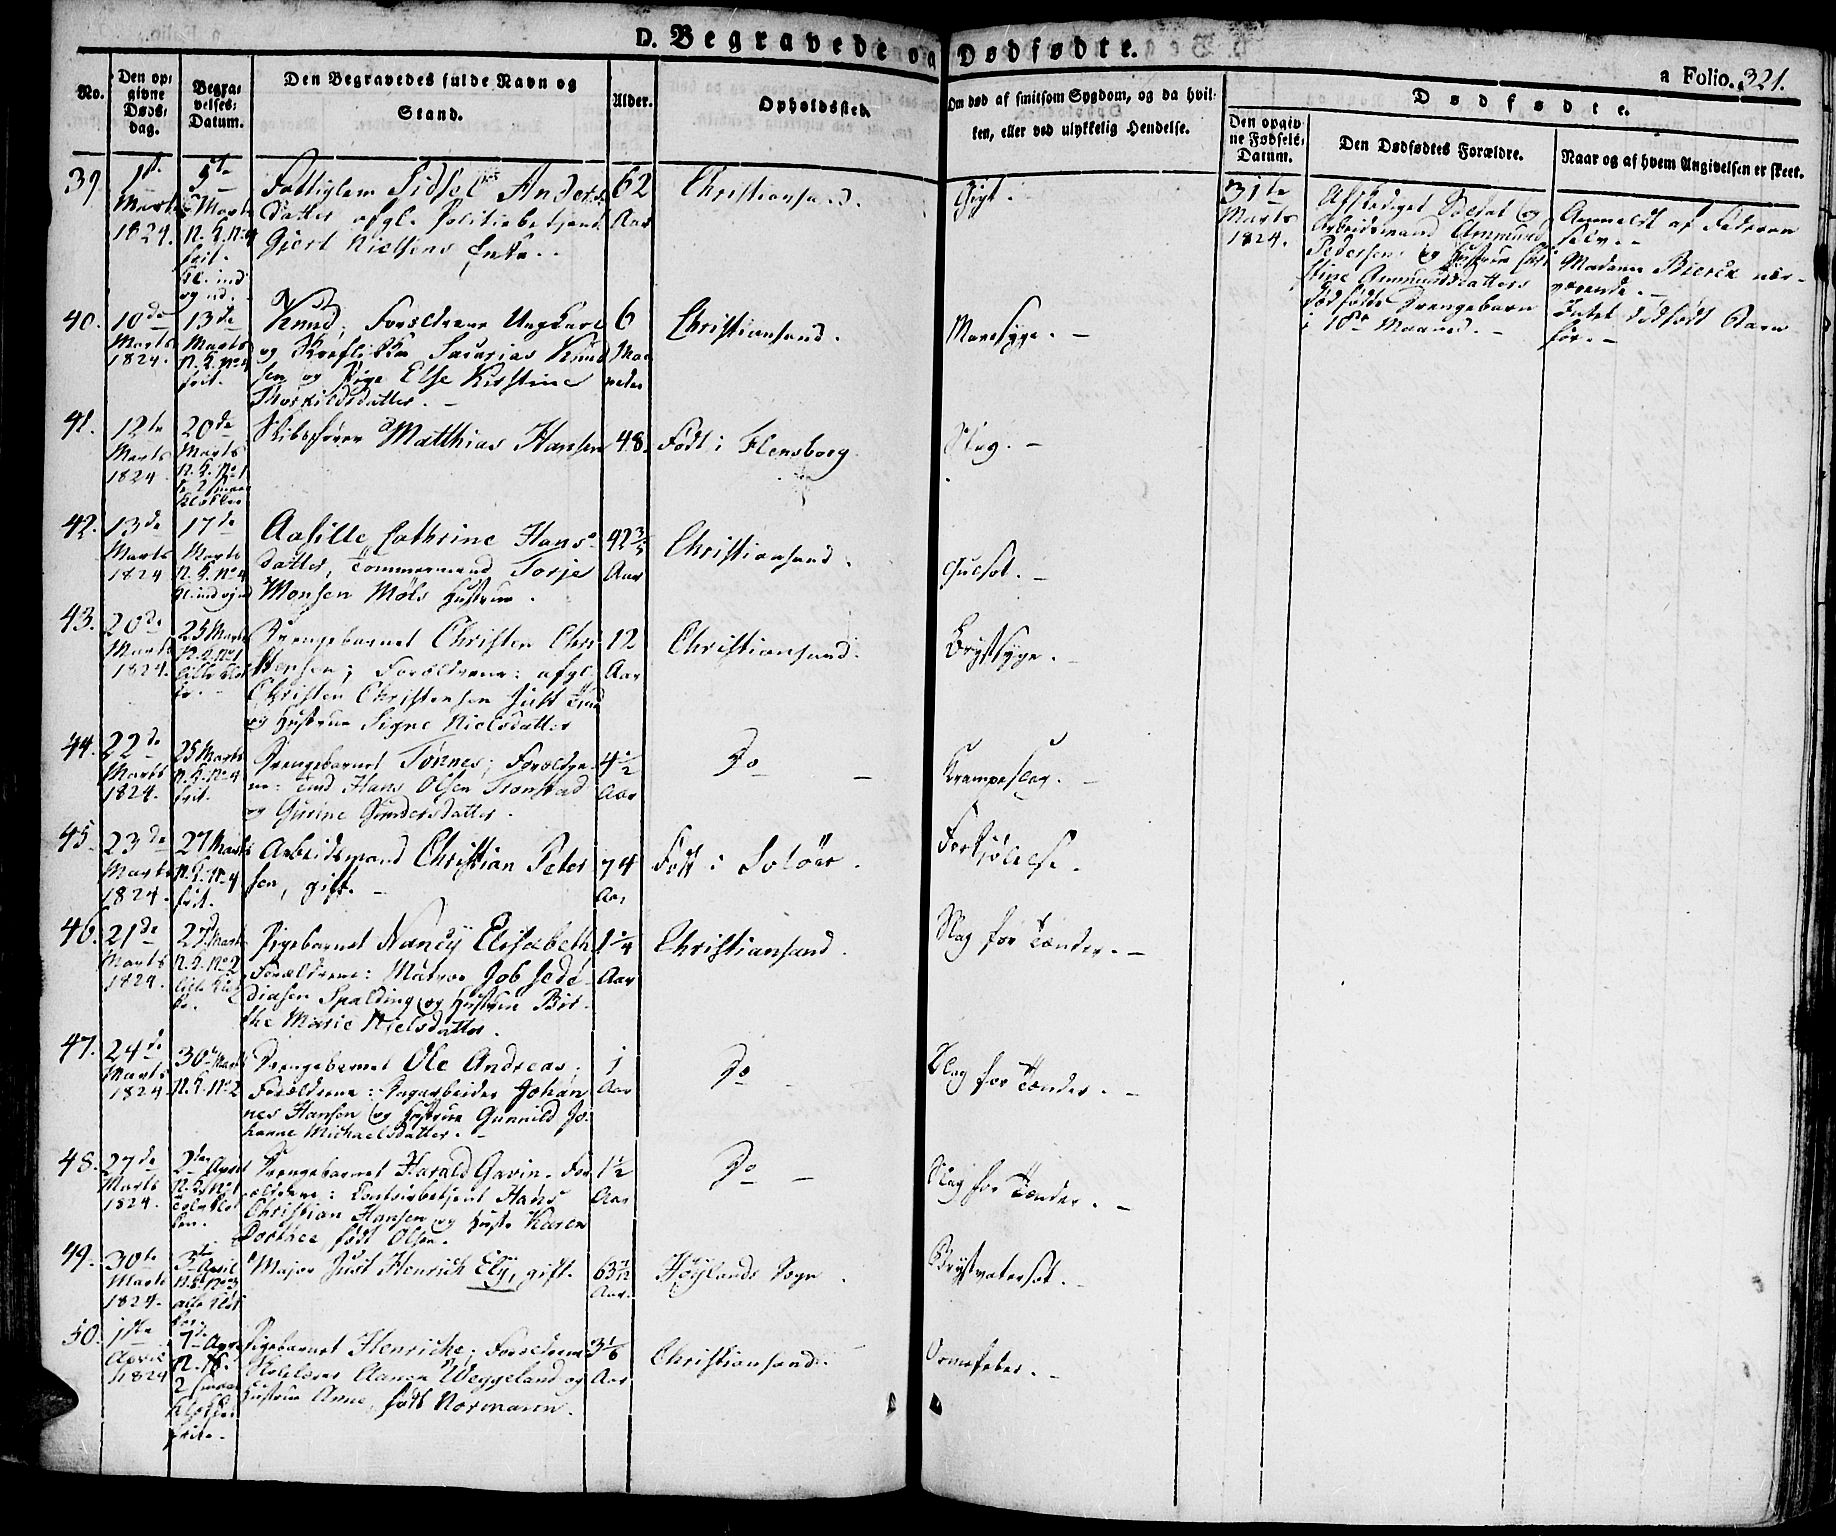 D. Begravede og Dødfødte.
a Folio. 321.
No.
Den op-
givne
Døds-
dag.
Begra-
velses-
Datum.
Den Begravedes fulde Navn og
Stand.
Alder.
Opholdssted.
Om død af smitsom Sygdom, og da hvil-
ken, eller ved ulykkelig Hendelse.
Dødfødte.
Den opgiv-
ne Fødsels-
Datum.
Den Dødfødtes Forældre.
Naar og af hvem Angivelsen er skeet.
39.
1ste
Marts
1824.
5te
Marts
N.K. No 4
frit.
Kl. ind
og ud.
Fattiglem Sidsel Anders
datter afgl. Politiebetjent
Gjert Nielsens Enke.
62
Aar
Christiansand.
Gigt.
31te
Marts
1824.
Afskediget Soldat og
Arbeidsmand Ammund
Pedersens og Hustrue Chri
stine Ammundsdatters
dødfødte Drengebarn
i 10de Maaned.
Anmeldt af Faderen
selv.
Madame Bierck nær-
værende.
Intet dødfødt Barn
før.
40.
10de
Marts
1824.
13de
Marts
N.K. No 4
frit.
Knud; Forældrene Ungkarl
og Sacarias Knud
sen og Pige Else Kirstine
Thorkildsdatter.
6
Maa
neder
Christiansand.
Mavesyge.
41.
12te
Marts
1824.
20de
Marts
N.K. No 1
2 smaae
Klokker
Skibsfører Matthias Hansen
48.
Født i Flensborg.
Slag.
42.
13de
Marts
1824
17de
Marts
N.K. No 4
Kl. ind og ud
Aasille Cathrine Hans-
datter, Tømmermand Torje
Monsen Møls Hustrue.
42 3/5
Aar
Christiansand.
Guulsot.
43.
20de
Marts
1824.
25 Marts
N.K. No 1
lille Klok
ke.
Drengebarnet Christen Chri-
stensen; Forældrene: afgl.
Christen Christensen Just
og Hustrue Signe Nielsdatter
12
Aar
Christiansand.
Brystsyge.
44.
22de
Marts
1824.
25 Marts
N.K. No 4
frit.
Drengebarnet Tønnes; Forældre-
ne: Hans Olsen Tronstad
og Gurine Gundersdatter.
4 1/2
Aar
Do
Krampeslag.
45.
23de
Marts
1824.
27 Marts
N.K. No 4
frit.
Arbeidsmand Christian Peter
sen, gift.
74
Aar
Født i Soløer.
Forkjølelse.
46.
21de
Marts
1824.
27 Marts
N.K. No 2
lille Klok
ke.
Pigebarnet Nancÿ Elisabeth
Forældrene: Matros Job Jede-
diasen Spalding og Hustrue Bir-
the Marie Nielsdatter.
1 1/4
Aar
Christiansand.
Slag for Tænder.
47.
24de
Marts
1824
30 Marts
N.K. No 2
Drengebarnet Ole Andreas;
Forældrene: Dagarbeider Johan
nes Hansen og Hustrue Gunnild Jo-
hanne Michaelsdatter.
1
Aar
Do
Slag for Tænder.
48.
27de
Marts
1824.
2den April
N.K. No 1
Klok
ken.
Drengebarnet Harald Gavin. For
ældrene: Hans
Christian Hansen og Hustr. Karen
Dorthee født Olsen.
1 1/2
Aar
Do
Slag for Tænder.
49.
30te
Marts
1824.
3die April
N.K. No 3
alle Klok
ker.
Major Just Henrich Elÿ, gift.
63 7/12
Aar.
Høÿlands Sogn.
Brystvatersot.
50.
1ste
April
1824
7de April
N.K.
2 smaae
Klokker
frit.
Pigebarnet Henriche; Forældrene
Skolelærer Aanen Weggeland og
Hustrue Anne, født Normann.
3 1/6
Aar
Christiansand.
Ormefeber.